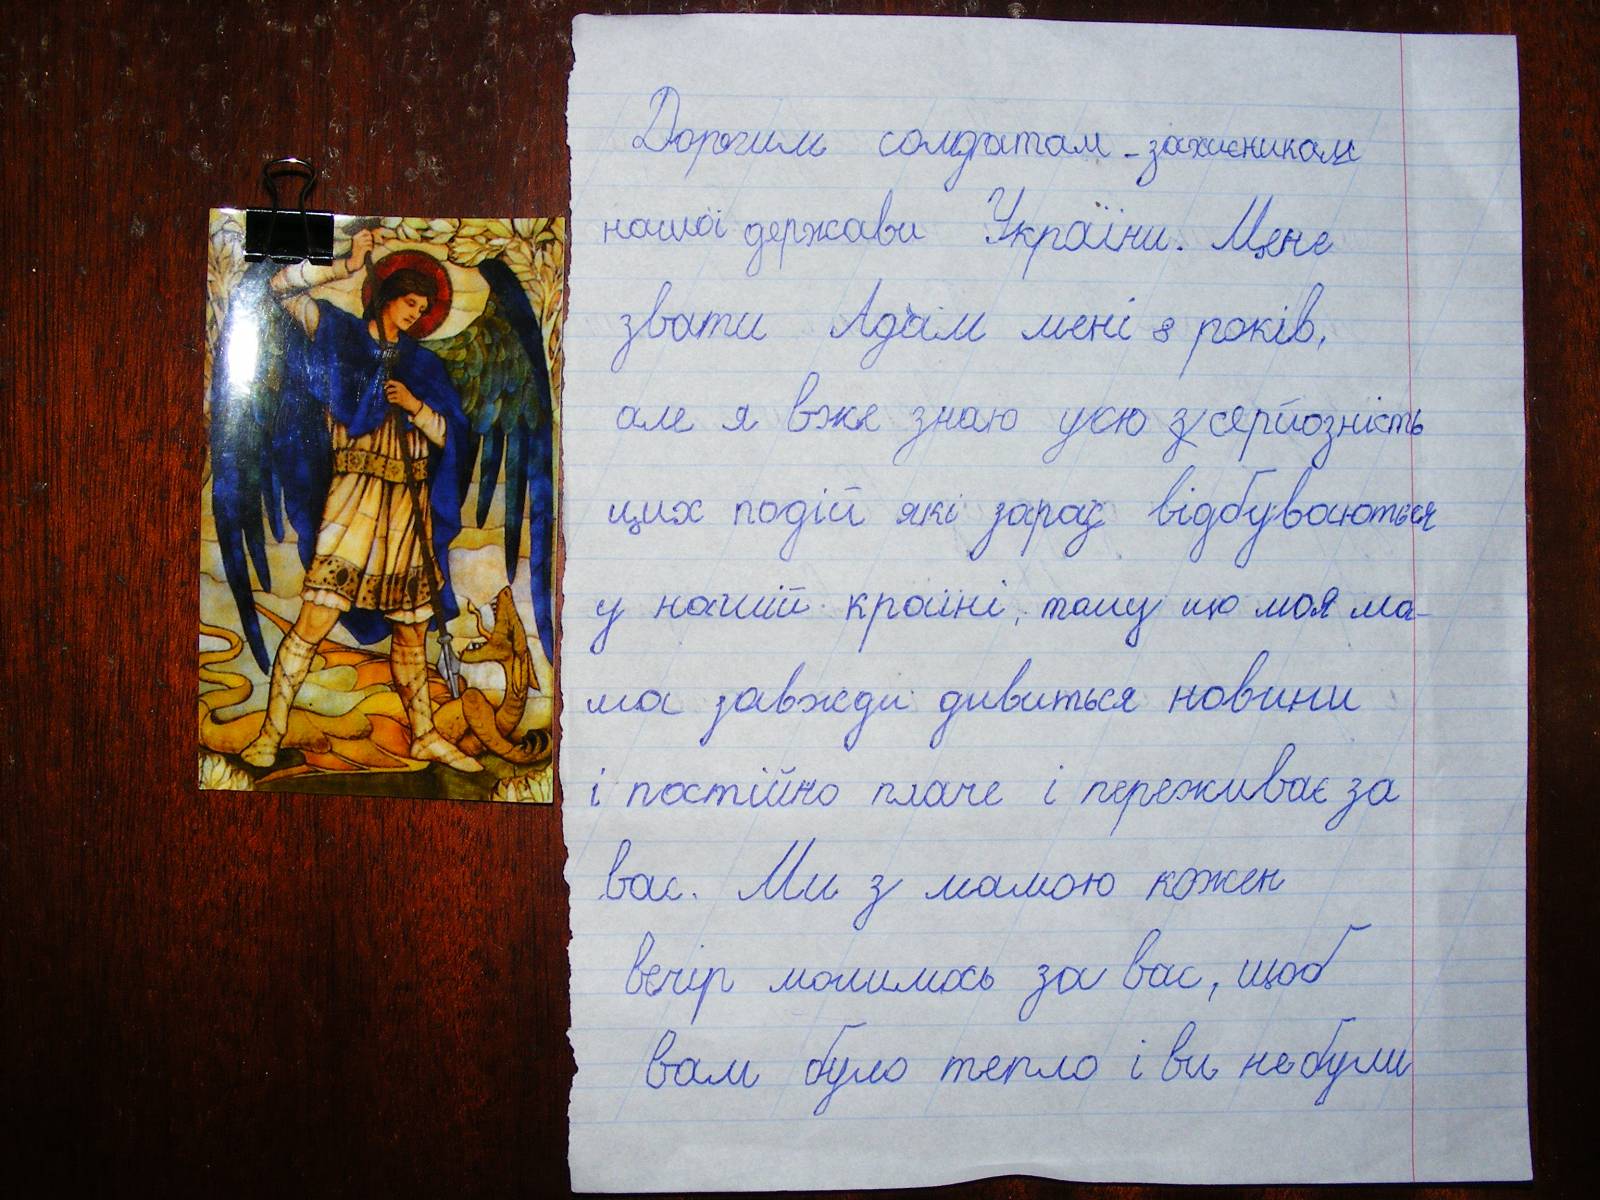 Дорогим солдатам - захисникам
нашої держави України. Мене
звати Адам мені 8 років,
але я вже знаю усю з серйозність
цих подій які зараз відбуваються
у нашій країні, тому що моя ма-
ма завжди дивиться новини
і постійно плаче і переживає за
вас. Ми з мамою кожен
вечір молимось за вас, щоб
вам було тепло і ви не були